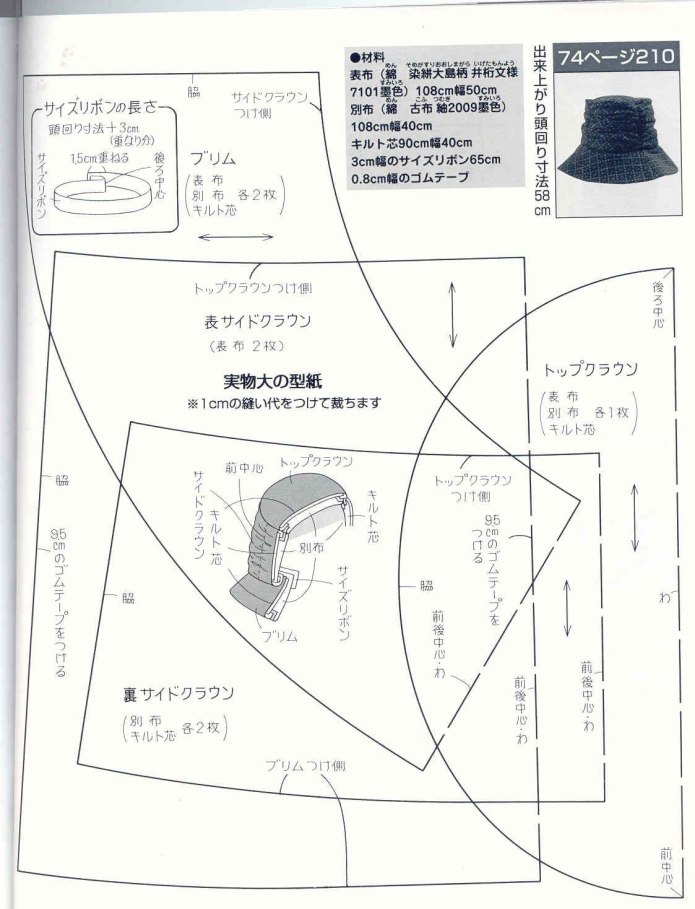 ●材料
表布（綿　染絣大島柄 井桁文様
めん　そめがすりおおしまがら いげたもんよう
7101墨色）108cm幅50cm
すみいろ
別布（綿　古布 紬2009墨色）
めん　こふ つむぎ　すみいろ
108cm幅40cm
キルト芯90cm幅40cm
3cm幅のサイズリボン65cm
0.8cm幅のゴムテープ
74ページ210
出来上がり頭回り寸法58cm
サイズリボンの長さ
頭回り寸法＋3cm
（重なり分）
1.5cm重ねる
サイズリボン
後ろ中心
脇
サイドクラウン
つけ側
ブリム
（表布
別布 各2枚
キルト芯）
トップクラウンつけ側
表サイドクラウン
（表布2枚）
実物大の型紙
※1cmの縫い代をつけて裁ちます
後ろ中心
トップクラウン
（表布
別布 各1枚
キルト芯）
トップクラウン
つけ側
前中心
トップクラウン
サイドクラウン
キルト芯
別布
キルト芯
サイズリボン
ブリム
脇
9.5cmのゴムテープをつける
脇
9.5cmのゴムテープを
つける
脇
わ
前後中心・わ
前後中心・わ
前後中心・わ
裏サイドクラウン
（別布
キルト芯 各2枚）
ブリムつけ側
前中心